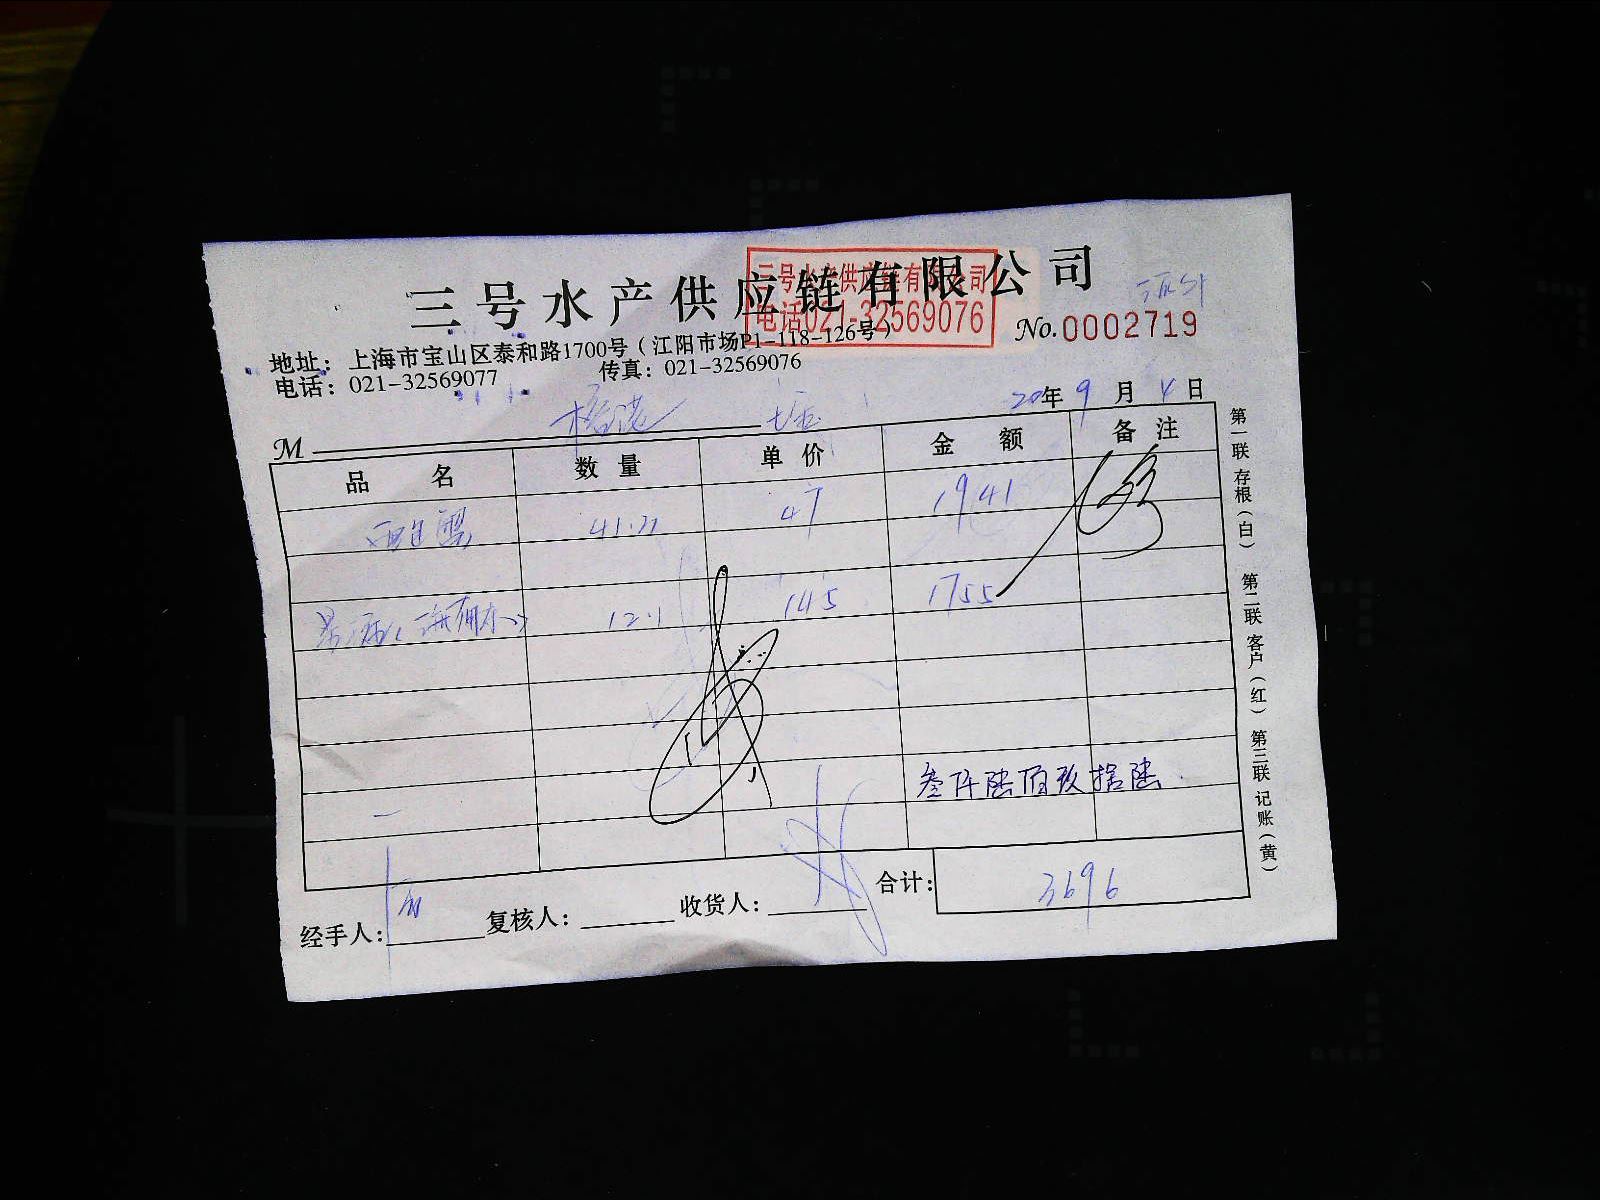 三号水产供应链有限公司
三号水产供应链有限公司
电话021-32569076
No.0002719
地址：上海市宝山区泰和路1700号（江阳市场P1-118-126号）
电话：021-32569077 传真：021-32569076
20年9月4日
M
品名 数量 单价 金额 备注
47 1941
12.1 145 1755
叁仟陆佰玖拾陆
合计：3696
经手人： 复核人： 收货人：
第一联 存根（白） 第二联 客户（红） 第三联 记账（黄）